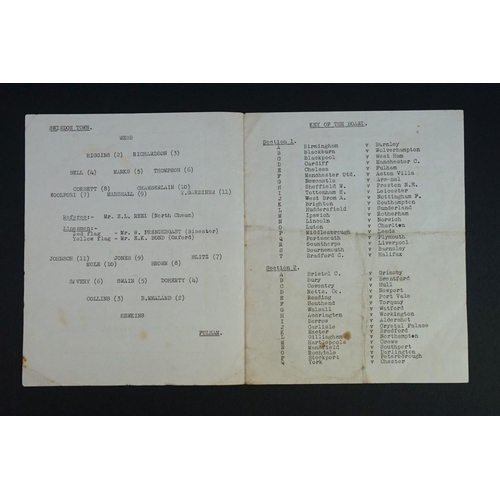 SWINDON TOWN.
WEBB
HIGGINS (2) RICHARDSON (3)
BELL (4) MARKS (5) THOMPSON (6)
CORBETT (8) CHAMBERLAIN (10)
WOOLFORD (7) MARSHALL (9) (11)
Referee:- Mr. (North Cheam)
Linesmen:-
Red flag - Mr. W. PRENDERGAST (Bicester)
Yellow flag - Mr. H.K. BOND (Oxford)
JOHNSON (11) JONES (9) BLITZ (7)
(10) BROWN (8)
SAVERY (6) SWAIN (5) DOHERTY (4)
COLLINS (3) (2)
HEWKINS
FULHAM.
KEY OF THE BOARD.
Section 1.
A Birmingham v Burnley
B Blackburn v Wolverhampton
C Blackpool v West Ham
D Cardiff v Manchester C.
E Chelsea v Fulham
F Manchester Utd. v Aston Villa
G Newcastle v Arsenal
H Sheffield W. v Preston N.E.
I Tottenham H. v Leicester
J West Brom A. v Nottingham F.
K Brighton v Southampton
L Huddersfield v Sunderland
M Ipswich v Rotherham
N Lincoln v Norwich
O Luton v Charlton
P Middlesbrough v Leeds
Q Portsmouth v Plymouth
R Scunthorpe v Liverpool
S Swansea v Barnsley
T Bradford C. v Halifax
Section 2.
A Bristol C. v Grimsby
B Bury v Brentford
C Coventry v Hull
D Notts. Co. v Newport
E Reading v Port Vale
F Southend v Torquay
G Walsall v Watford
H Accrington v Workington
I Barrow v Aldershot
J Carlisle v Crystal Palace
K Exeter v Bradford
L Gillingham v Northampton
M Hartlepools v Crewe
N Mansfield v Southport
O Rochdale v Darlington
P Stockport v Peterborough
Q York v Chester